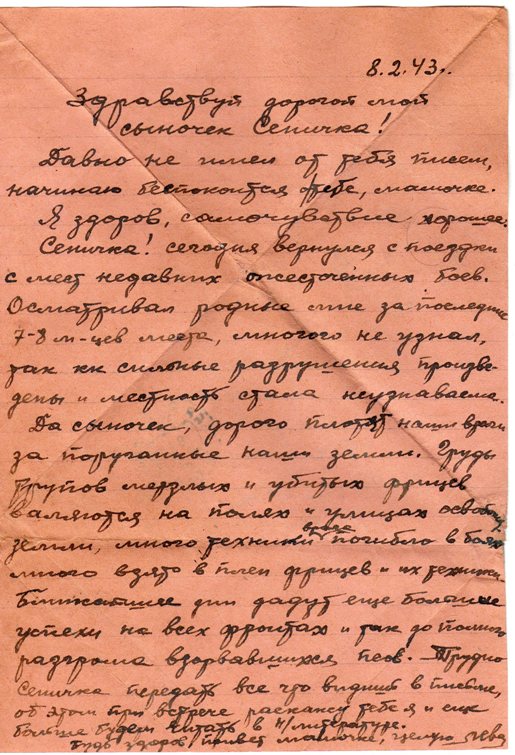 8.2.43г.
Здравствуй дорогой мой
сыночек Сеничка!
Давно не имел от тебя писем,
начинаю беспокоится о тебе, мамочке.
Я здоров, самочувствие хорошее.
Сеничка! сегодня вернулся с поездки
с мест недавних ожесточенных боев.
Осматривал родные мне за последние
7-8 м-цев места, многого не узнал,
так как сильные разрушения произве-
дены и местность стала неузнаваема.
Да сыночек, дорого платят наши враги
за поруганные наши земли. Груды
трупов мерзлых и убитых фрицев
валяются на полях и улицах освобожд.
земли, много техники врага погибло в боях
много взято в плен фрицев и их техники
Ближайшие дни дадут еще большие
успехи на всех фронтах и так до полного
разгрома взорвавшихся псов. Трудно
Сеничка передать все что видишь в письме,
об этом при встрече раскажу тебе я и еще
больше будем читать в н/литературе.
Будь здоров, привет мамочке, целую